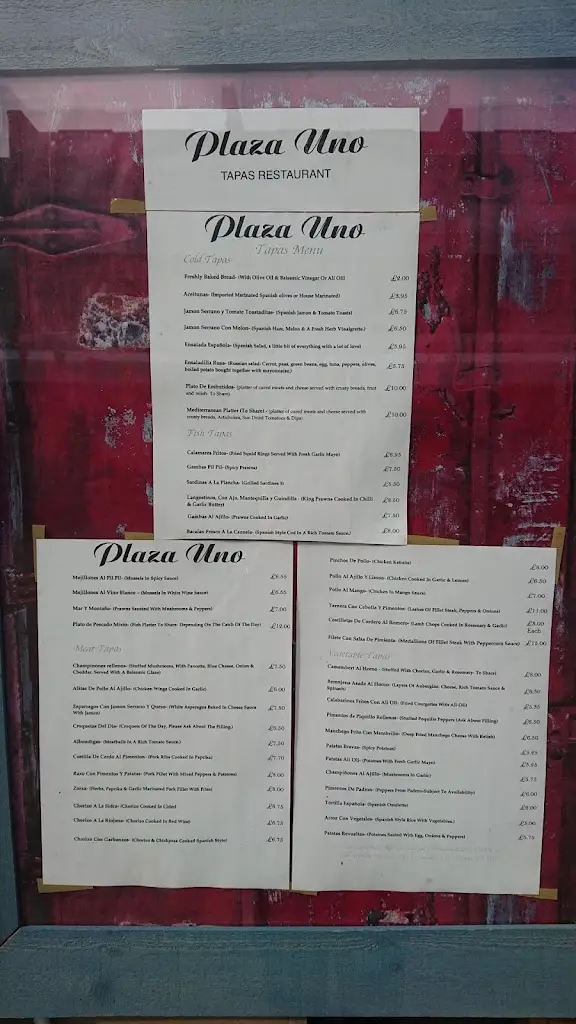 Plaza Uno
TAPAS RESTAURANT
Plaza Uno
Tapas Menu
Cold Tapas
Freshly Baked Bread- (With Olive Oil & Balsamic Vinegar Or Ali Oli) £2.00
Aceitunas- (Imported Marinated Spanish olives or House Marinated) £3.95
Jamon Serrano y Tomate Toastaditas- (Spanish Jamon & Tomato Toasts) £6.75
Jamon Serrano Con Melon- (Spanish Ham, Melon & A Fresh Herb Vinaigrette) £6.50
Ensalada Española- (Spanish Salad, a little bit of everything with a lot of love) £5.95
Ensaladilla Rusa- (Russian salad: Carrot, peas, green beans, egg, tuna, peppers, olives, £5.75
boiled potato bought together with mayonnaise)
Plato De Embutidos- (platter of cured meats and cheese served with crusty breads, fruit £10.00
and relish- To Share)
Mediterranean Platter (To Share)- (platter of cured meats and cheese served with £10.00
crusty breads, Artichokes, Sun Dried Tomatoes & Dips)
Fish Tapas
Calamares Fritos- (Fried Squid Rings Served With Fresh Garlic Mayo) £6.95
Gambas Pil Pil- (Spicy Prawns) £7.50
Sardinas A La Plancha- (Grilled Sardines) £5.50
Langostinos, Con Ajo, Mantequilla y Guindilla - (King Prawns Cooked In Chilli £8.50
& Garlic Butter)
Gambas Al Ajillo- (Prawns Cooked In Garlic) £7.50
Bacalao Fresco A La Cazuela- (Spanish Style Cod In A Rich Tomato Sauce) £8.00
Plaza Uno
Mejillones Al Pil Pil- (Mussels In Spicy Sauce) £6.55
Mejillones Al Vino Blanco - (Mussels In White Wine Sauce) £6.55
Mar Y Montaña- (Prawns Sautéed With Mushrooms & Peppers) £7.00
Plato de Pescado Mixto- (Fish Platter To Share- Depending On The Catch Of The Day) £12.00
Meat Tapas
Champinones rellenos- (Stuffed Mushrooms, With Pancetta, Blue Cheese, Onion & £7.50
Cheddar, Served With A Balsamic Glaze)
Alitas De Pollo Al Ajillo- (Chicken Wings Cooked In Garlic) £6.00
Esparragos Con Jamon Serrano Y Queso- (White Asparagus Baked In Cheese Sauce £7.50
With Jamon)
Croquetas Del Dia- (Croquets Of The Day, Please Ask About The Filling) £6.50
Albondigas- (Meatballs In A Rich Tomato Sauce) £7.50
Costilla De Cerdo Al Pimenton- (Pork Ribs Cooked In Paprika) £7.70
Raxo Con Pimentos Y Patatas- (Pork Fillet With Mixed Peppers & Potatoes) £8.00
Zorza- (Herbs, Paprika & Garlic Marinated Pork Fillet With Fries) £8.00
Chorizo A La Sidra- (Chorizo Cooked In Cider) £6.75
Chorizo A La Riojana- (Chorizo Cooked In Red Wine) £6.75
Chorizo Con Garbanzos- (Chorizo & Chickpeas Cooked Spanish Style) £6.75
Pinchos De Pollo- (Chicken Kebabs) £8.00
Pollo Al Ajillo Y Limon- (Chicken Cooked In Garlic & Lemon) £6.50
Pollo Al Mango- (Chicken In Mango Sauce) £7.00
Ternera Con Cebolla Y Pimentos- (Lashes Of Fillet Steak, Peppers & Onions) £11.00
Costilletas De Cordero Al Romero- (Lamb Chops Cooked In Rosemary & Garlic) £3.00
Each
Filete Con Salsa De Pimienta- (Medallions Of Fillet Steak With Peppercorn Sauce) £15.00
Vegetable Tapas
Camembert Al Horno - (Studded With Chorizo, Garlic & Rosemary- To Share) £9.00
Berenjena Asada Al Horno- (Layers Of Aubergine, Cheese, Rich Tomato Sauce & £6.50
Spinach)
Calabacines Fritos Con Ali Oli- (Fried Courgettes With Ali Oli) £5.35
Pimentos de Piquillo Rellenos- (Stuffed Piquillo Peppers (Ask About Filling) £6.50
Manchego Frito Con Membrillo- (Deep Fried Manchego Cheese With Relish) £6.50
Patatas Bravas- (Spicy Potatoes) £5.25
Patatas Ali Oli- (Potatoes With Fresh Garlic Mayo) £5.25
Champiñones Al Ajillo- (Mushrooms In Garlic) £5.75
Pimentos De Padron- (Peppers From Padron-Subject To Availability) £6.00
Tortilla Española- (Spanish Omelette) £6.00
Arroz Con Vegetales- (Spanish Style Rice With Vegetables) £5.00
Patatas Revueltas- (Potatoes Sautéed With Egg, Onions & Peppers) £5.75